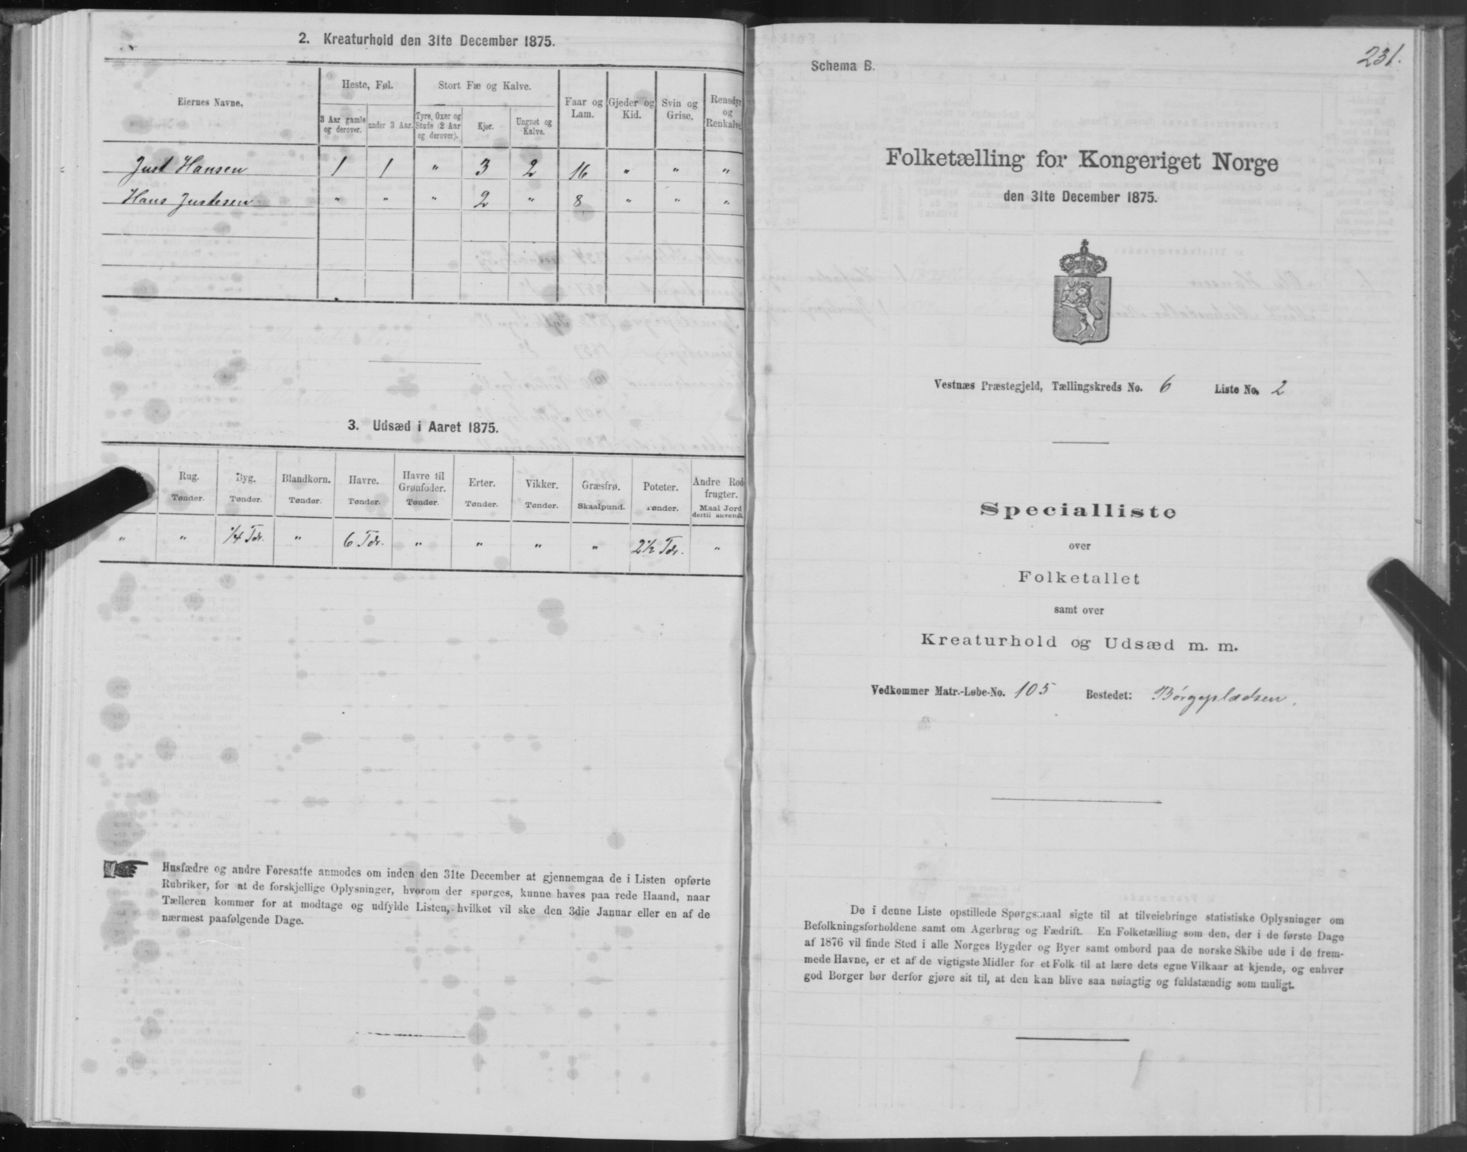 2. Kreaturhold den 31te December 1875.
Eiernes Navne.
Heste, Føl.
Stort Fæ og Kalve.
Faar og Lam.
Gjeder og Kid.
Svin og Grise.
Rensdyr og Renkalve
3 Aar gamle og derover.
under 3 Aar.
Tyre, Oxer og Stude (2 Aar og derover).
Kjør.
Ungnøt og Kalve.
Just Hansen 1 1 " 3 2 16 " " "
Hans Justesen " " " 2 " 8 " " "
3. Udsæd i Aaret 1875.
Rug. Byg. Blandkorn. Havre. Havre til Grønfoder. Erter. Vikker. Græsfrø. Poteter. Andre Rodfrugter.
Tønder. Tønder. Tønder. Tønder. Tønder. Tønder. Tønder. Skaalpund. Tønder. Maal Jord dertil anvendt.
" " 1/4 Tdr. " 6 Tdr. " " " " 2 1/2 Tdr. "
Husfædre og andre Foresatte anmodes om inden den 31te December at gjennemgaa de i Listen opførte
Rubriker, for at de forskjellige Oplysninger, hvorom der spørges, kunne haves paa rede Haand, naar
Tælleren kommer for at modtage og udfylde Listen, hvilket vil ske den 3die Januar eller en af de
nærmest paafølgende Dage.
231.
Schema B.
Folketælling for Kongeriget Norge
den 31te December 1875.
Vestnæs Præstegjeld, Tællingskreds No. 6 Liste No. 2
Specialliste
over
Folketallet
samt over
Kreaturhold og Udsæd m. m.
Vedkommer Matr.-Løbe-No. 105 Bostedet: Børgepladsen.
De i denne Liste opstillede Spørgsmaal sigte til at tilveiebringe statistiske Oplysninger om
Befolkningsforholdene samt om Agerbrug og Fædrift. En Folketælling som den, der i de første Dage
af 1876 vil finde Sted i alle Norges Bygder og Byer samt ombord paa de norske Skibe ude i de frem-
mede Havne, er et af de vigtigste Midler for et Folk til at lære dets egne Vilkaar at kjende, og enhver
god Borger bør derfor gjøre sit til, at den kan blive saa nøiagtig og fuldstændig som muligt.